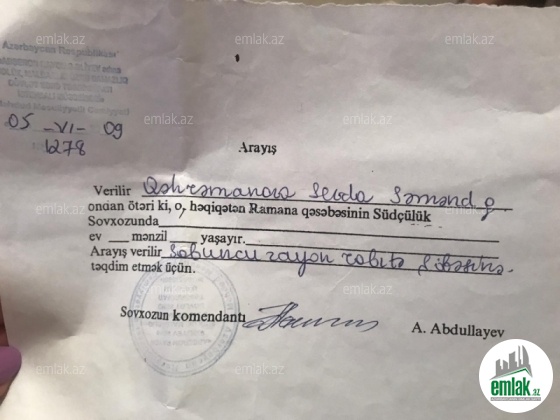 Azərbaycan Respublikası
05 -VI- 09
1278
Arayış
Verilir Qəhrəmanova Sevda Səmənd q
ondan ötəri ki, o, həqiqətən Ramana qəsəbəsinin Südçülük
Sovxozunda
ev ___ mənzil ____ yaşayır.
Arayış verilir Sabunçu rayon rabitə şöbəsinə.
təqdim etmək üçün.
Sovxozun komendantı
A. Abdullayev
emlak.az